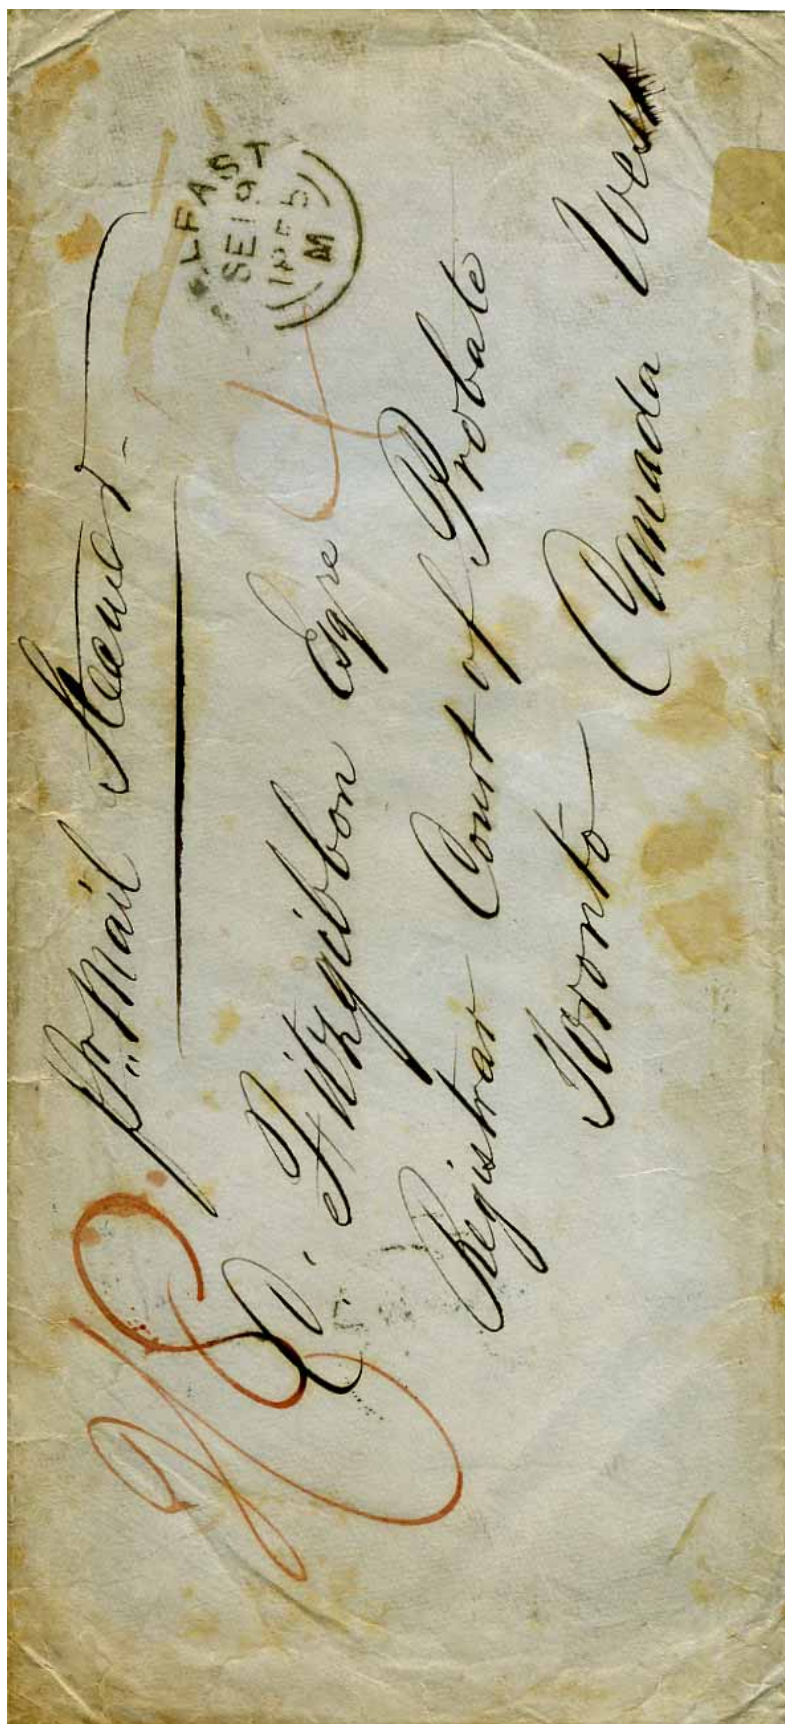 Pr Mail Steamer
BELFAST
SE 19
1855
M
C. Fitzgibbon Esqre
Registrar Court of Probate
Toronto Canada West